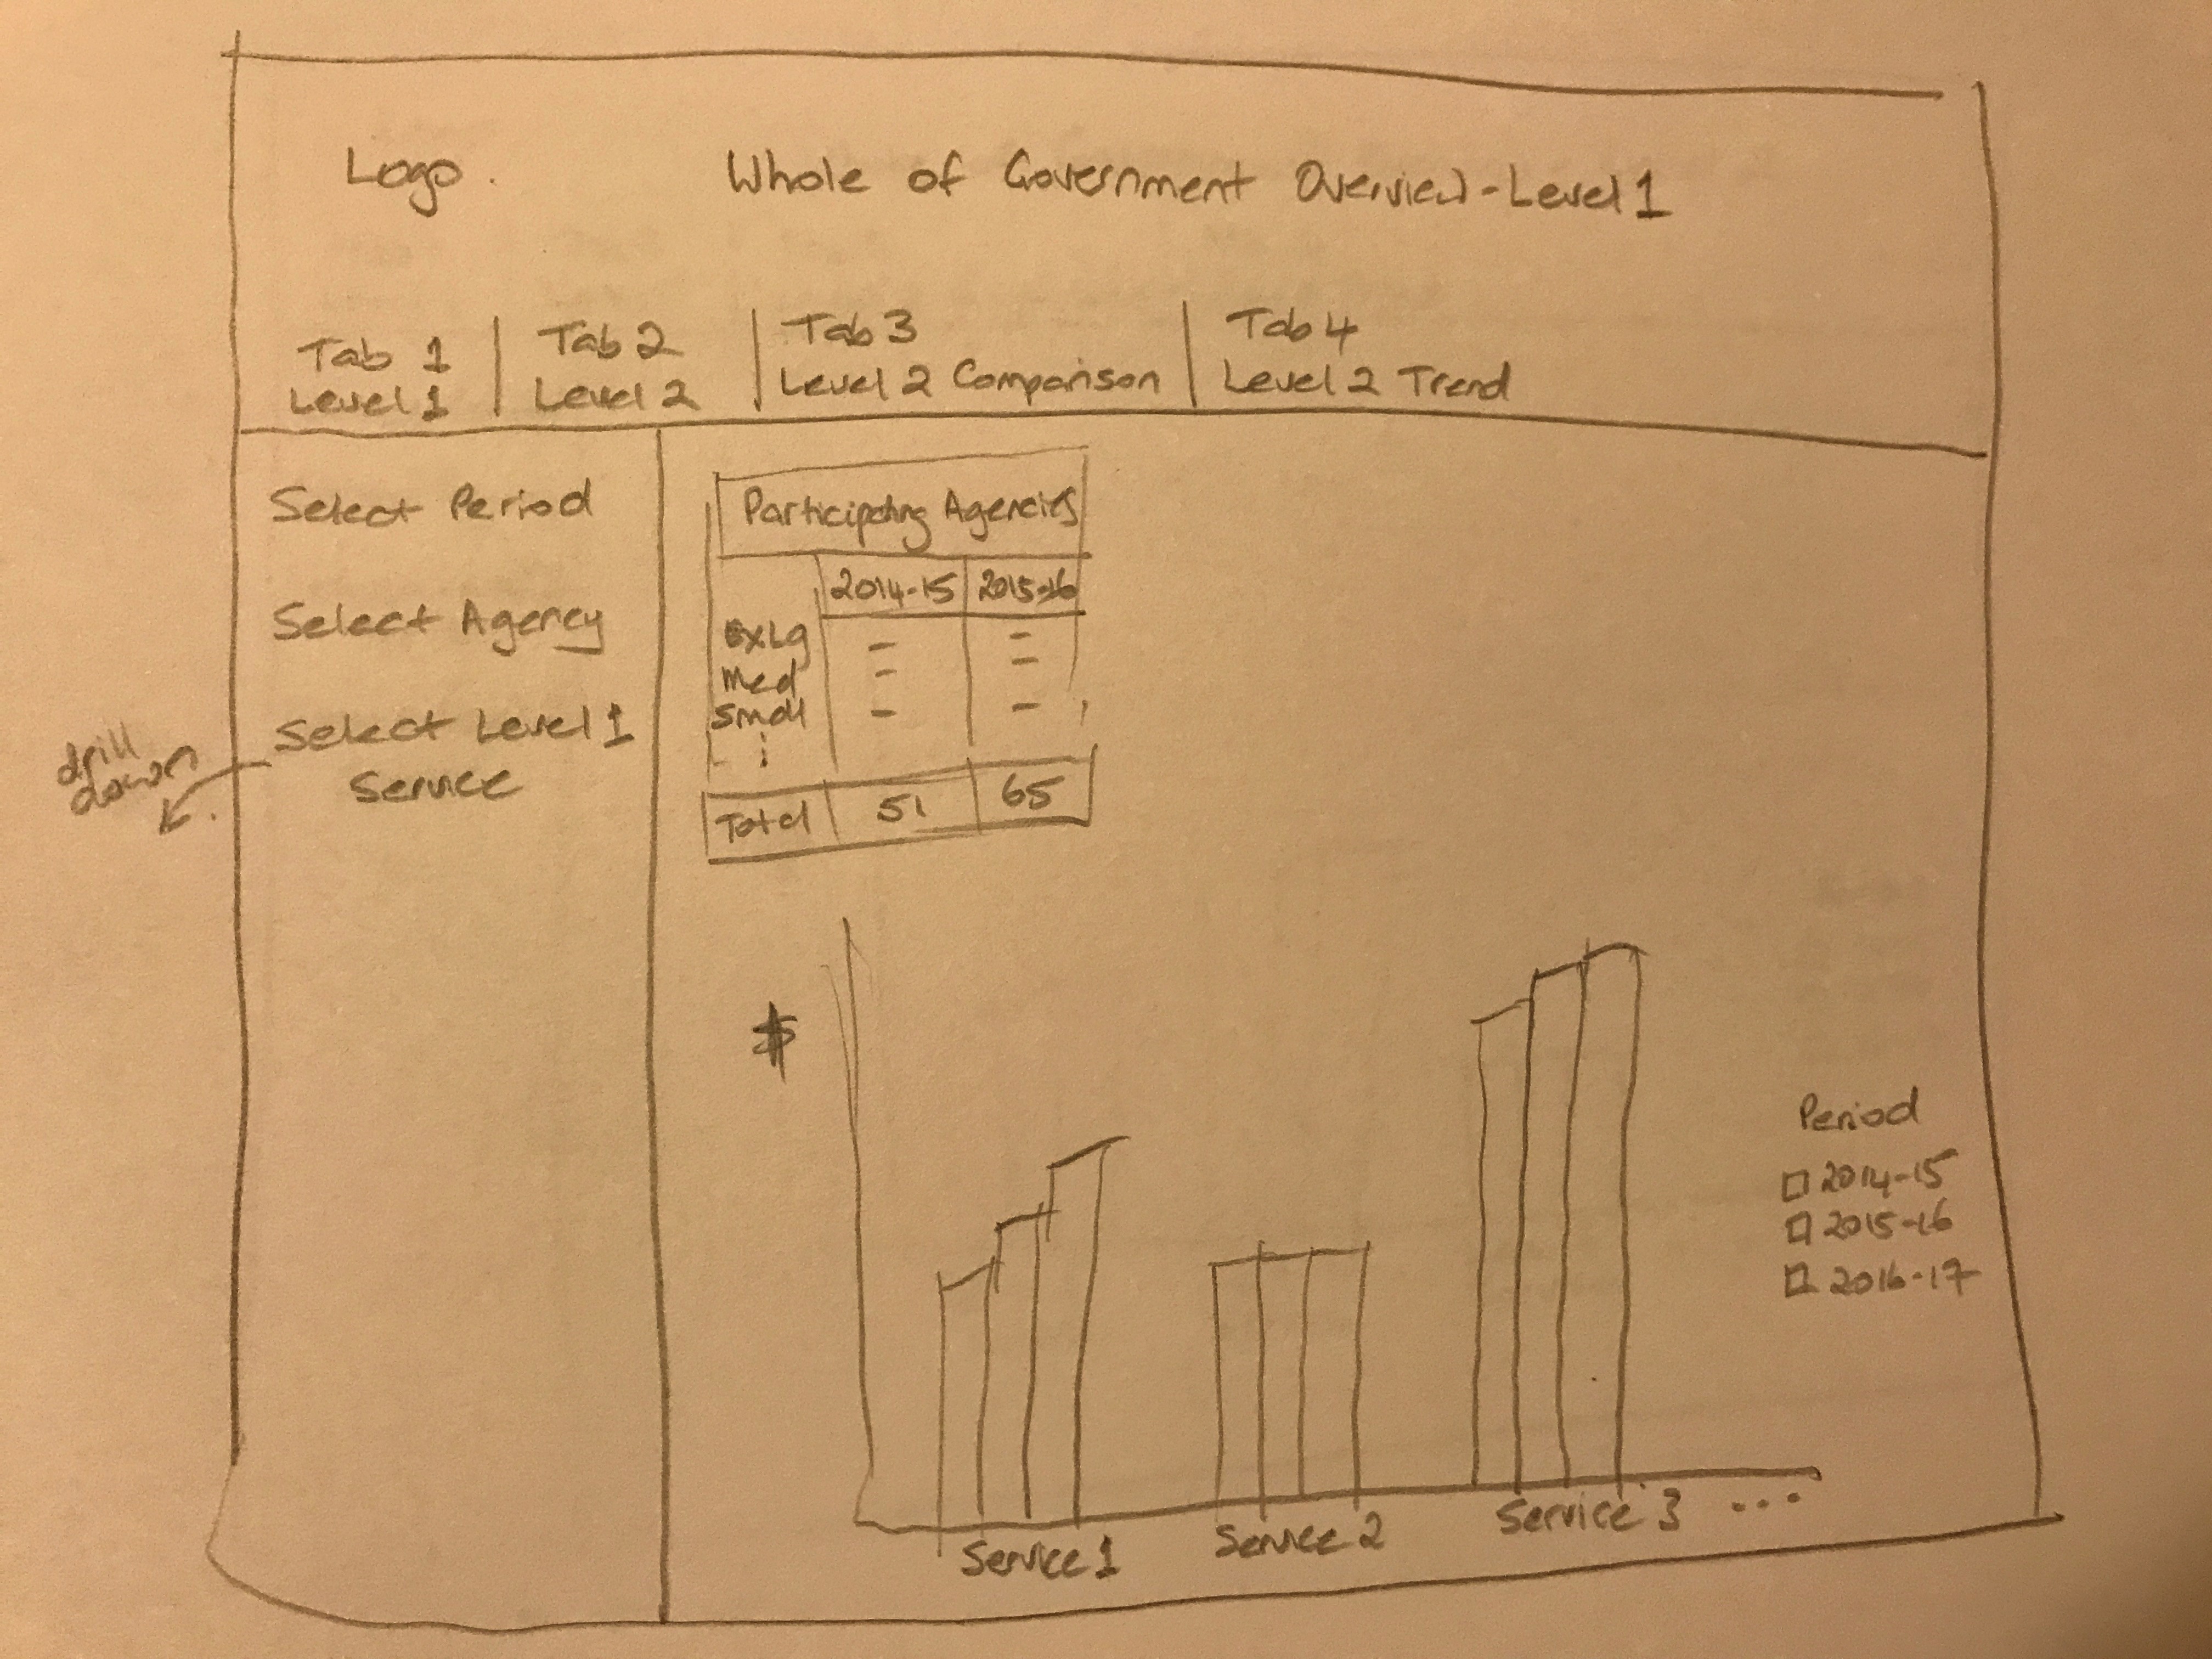 Logo.
Whole of Government Overview - Level 1
Tab 1
Level 1
Tab 2
Level 2
Tab 3
Level 2 Comparison
Tab 4
Level 2 Trend
Select Period
Select Agency
Select Level 1
Service
drill
down
Participating Agencies
2014-15 2015-16
ExLg - -
Med - -
Small - -
Total 51 65
$
Service 1
Service 2
Service 3 ...
Period
2014-15
2015-16
2016-17